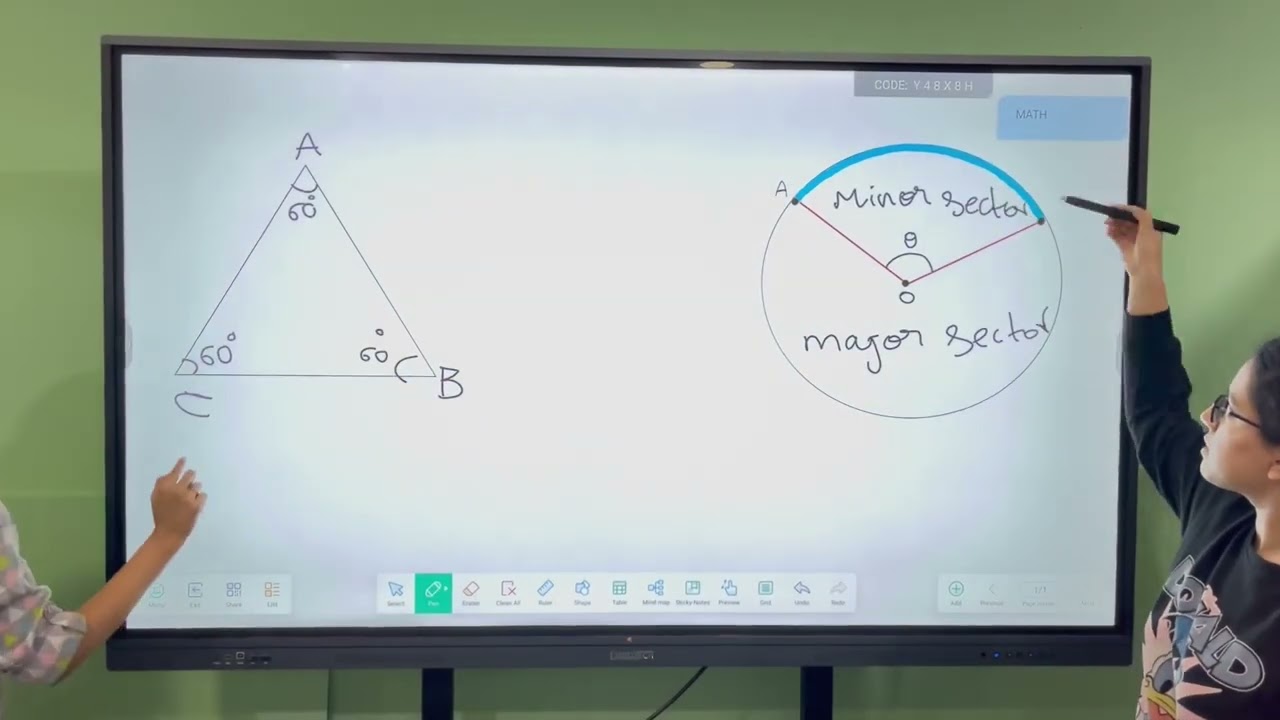 CODE: Y 4 8 X 8 H
MATH
A
60°
60°
60°
C
B
A
Minor sector
θ
O
major sector
Menu
Exit
Share
Edit
Select
Pen
Eraser
Clean All
Ruler
Shape
Table
Mind map
Sticky Notes
Preview
Grid
Undo
Redo
Add
Previous
1/1